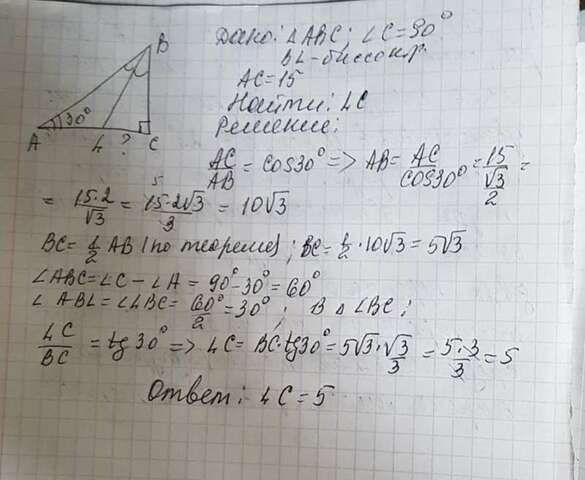 Дано: ∠ABC; ∠C=90°
BL-биссектр.
AC=15
Найти: LC
Решение:
B
30°
A L ? C
AC/AB = cos30° => AB = AC/cos30° = 15/(√3/2) =
= 15·2/√3 = 15·2√3/3 = 10√3
5
BC=1/2 AB (по теореме); BC=1/2·10√3=5√3
∠ABC=∠C-∠A=90°-30°=60°
∠ABL=∠LBC=60°/2=30°; В ∆ LBC;
LC/BC = tg30° => LC=BC·tg30°=5√3·√3/3=5·3/3=5
Ответ: LC=5